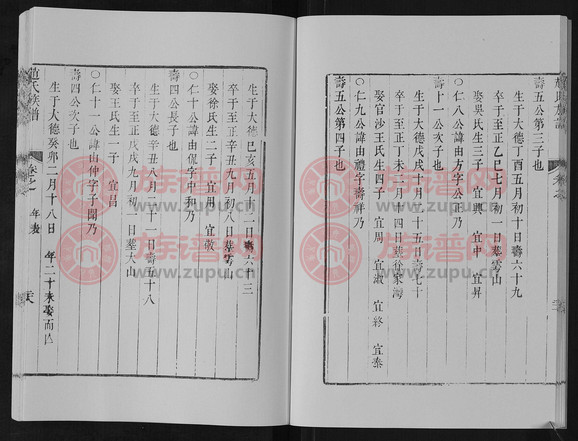 壽五公第三子也
生于大德丁酉五月初十日壽六十九
卒于至正乙巳七月初一日墓雩山
娶吳氏生三子 宜興 宜中 宜昇
○仁八公諱由方字公正乃
壽十一公次子也
生于大德戊戌十月十五日壽七十
卒于至正丁未三月十四日墓徐家灣
娶官沙王氏生四子 宜周 宜淑 宜終 宜泰
○仁九公諱由禮字壽祥乃
壽五公第四子也
生于大德己亥五月十二日壽六十三
卒于至正辛丑九月初八日墓雩山
娶徐氏生二子 宜用 宜敬
○仁十公諱由侃字中和乃
壽四公長子也
生于大德辛丑八月十一日壽五十八
卒于至正戊戌九月初一日墓大山
娶王氏生一子 宜昌
○仁十一公諱由仲字子閏乃
壽四公次子也
生于大德癸卯二月十八日 年二十未娶而亡
趙氏族譜 卷之一 年表
族谱网
www.zupu.cn
族谱网
www.zupu.cn